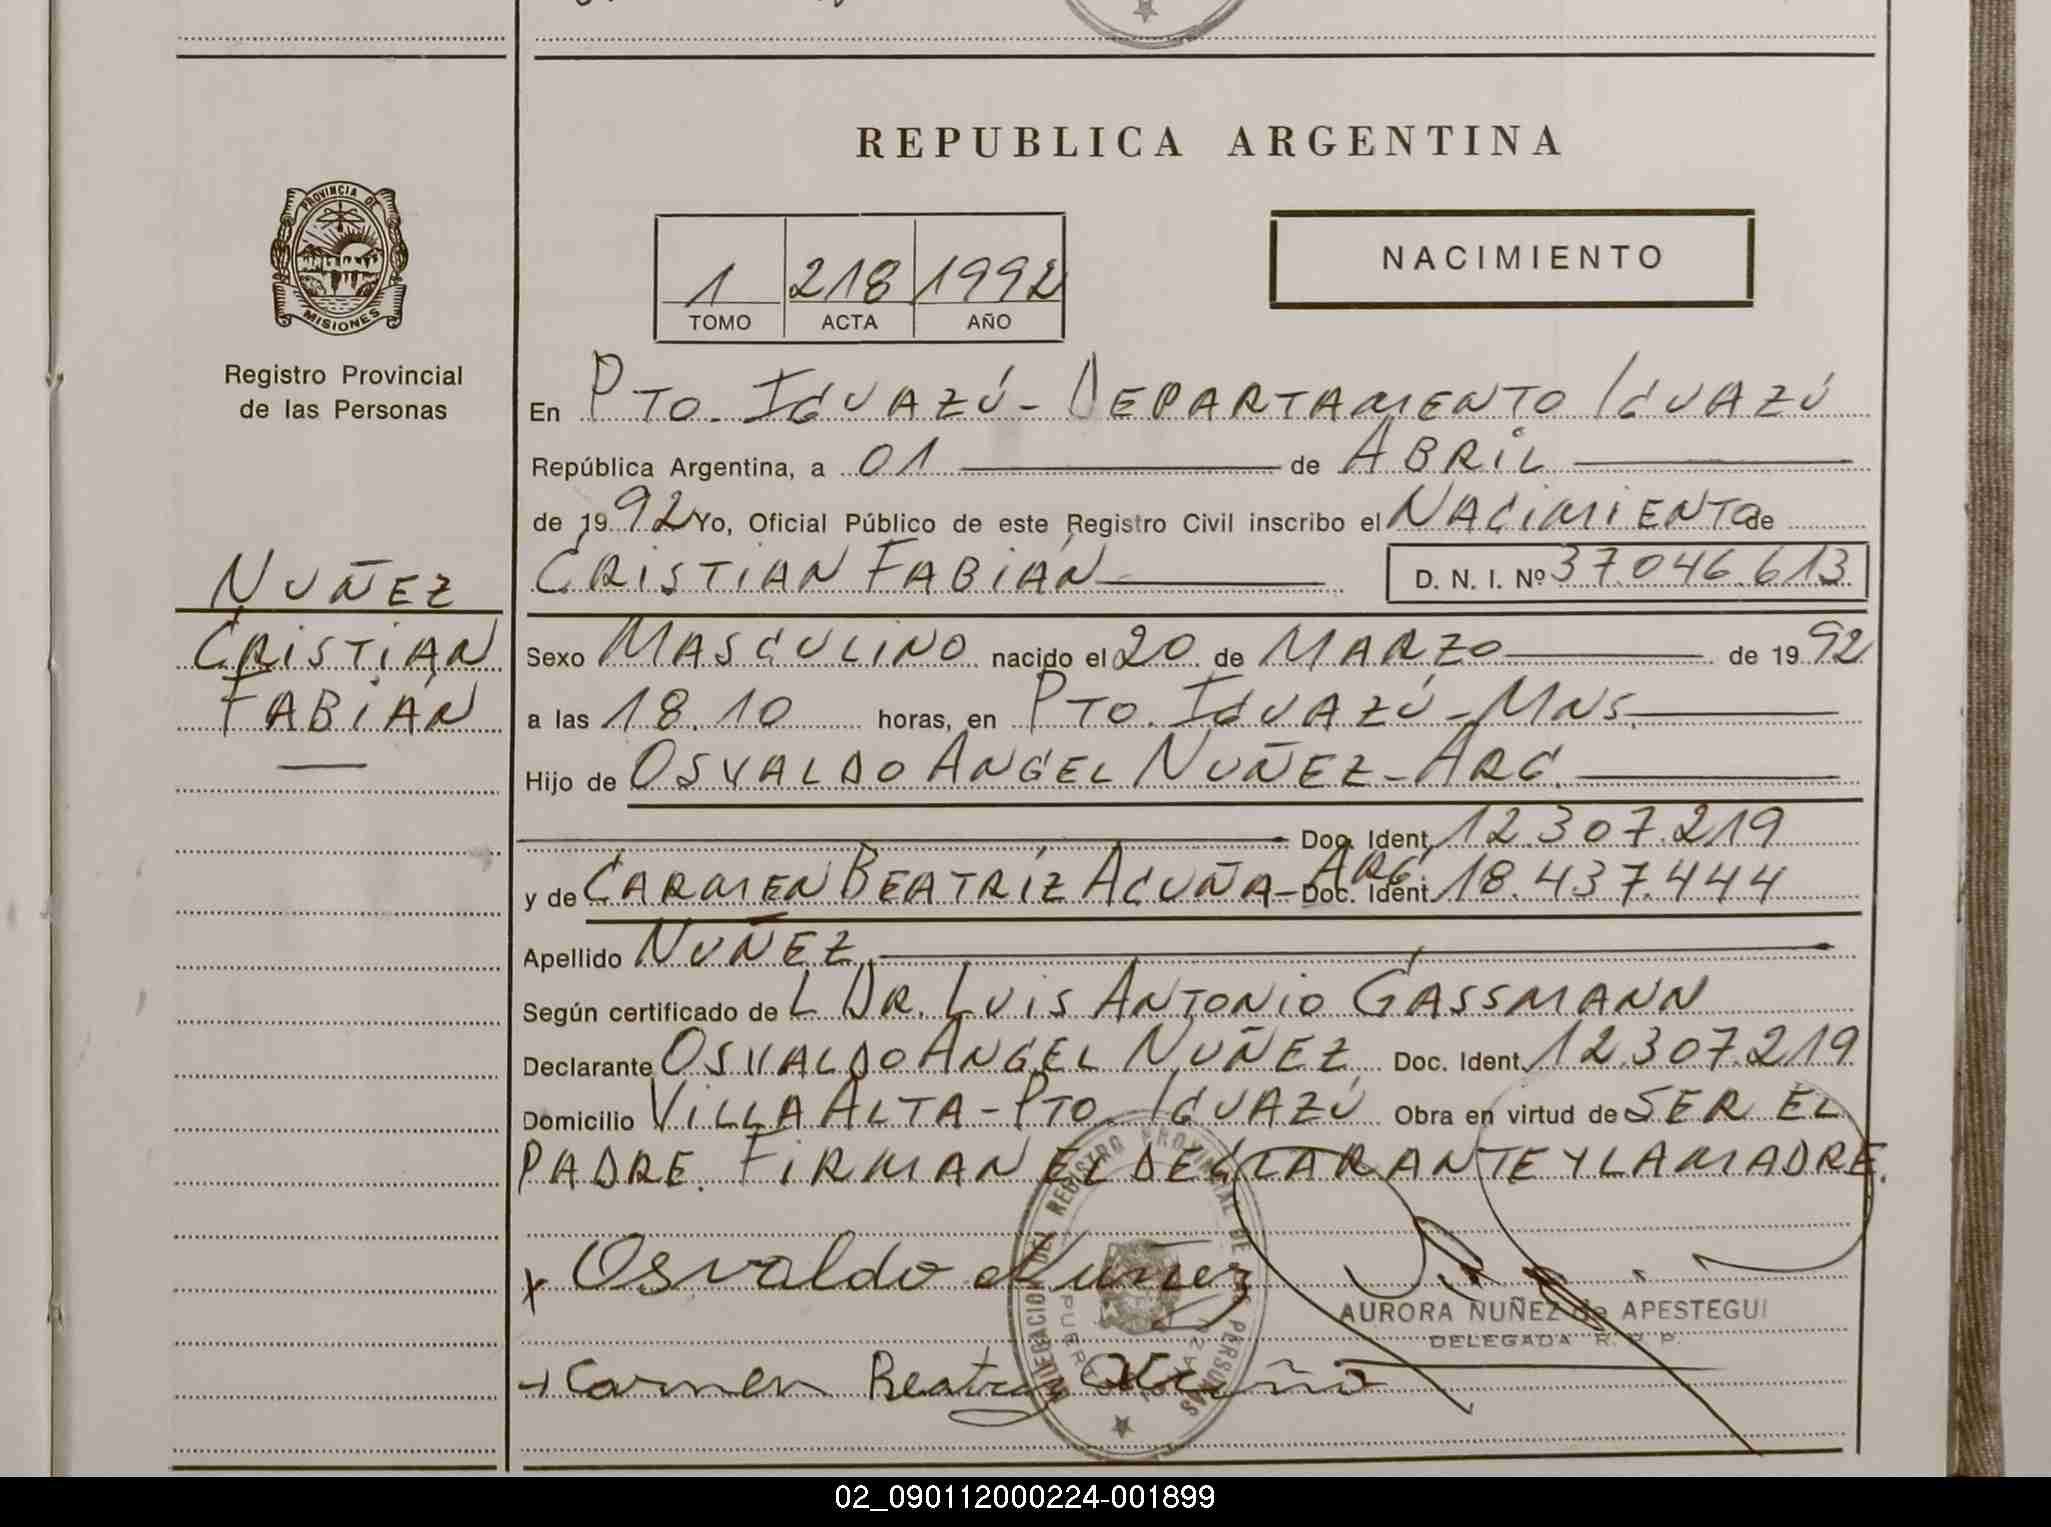 REPUBLICA ARGENTINA
PROVINCIA DE
MISIONES
Registro Provincial
de las Personas
NUÑEZ
CRISTIAN
FABIÁN
NACIMIENTO
1 218 1992
TOMO ACTA AÑO
En PTO. IGUAZÚ - DEPARTAMENTO IGUAZÚ
República Argentina, a 01 de ABRIL
de 1992 Yo, Oficial Público de este Registro Civil inscribo el NACIMIENTO de
CRISTIAN FABIÁN D. N. I. Nº 37.046.613
Sexo MASCULINO nacido el 20 de MARZO de 1992
a las 18.10 horas, en PTO. IGUAZÚ - MNS.
Hijo de OSVALDO ANGEL NUÑEZ - ARG.
Doc. Ident. 12.307.219
y de CARMEN BEATRÍZ ACUÑA - ARG. Doc. Ident. 18.437.444
Apellido NUÑEZ
Según certificado de L DR. LUIS ANTONIO GASSMANN
Declarante OSVALDO ANGEL NUÑEZ Doc. Ident. 12.307.219
Domicilio VILLA ALTA - PTO. IGUAZÚ Obra en virtud de SER EL
PADRE. FIRMAN EL DECLARANTE Y LA MADRE.
x Osvaldo Nuñez
AURORA NUÑEZ de APESTEGUI
DELEGADA R. P. P.
Carmen Beatriz Acuña
REGISTRO PROVINCIAL DE PERSONAS
02_090112000224-001899